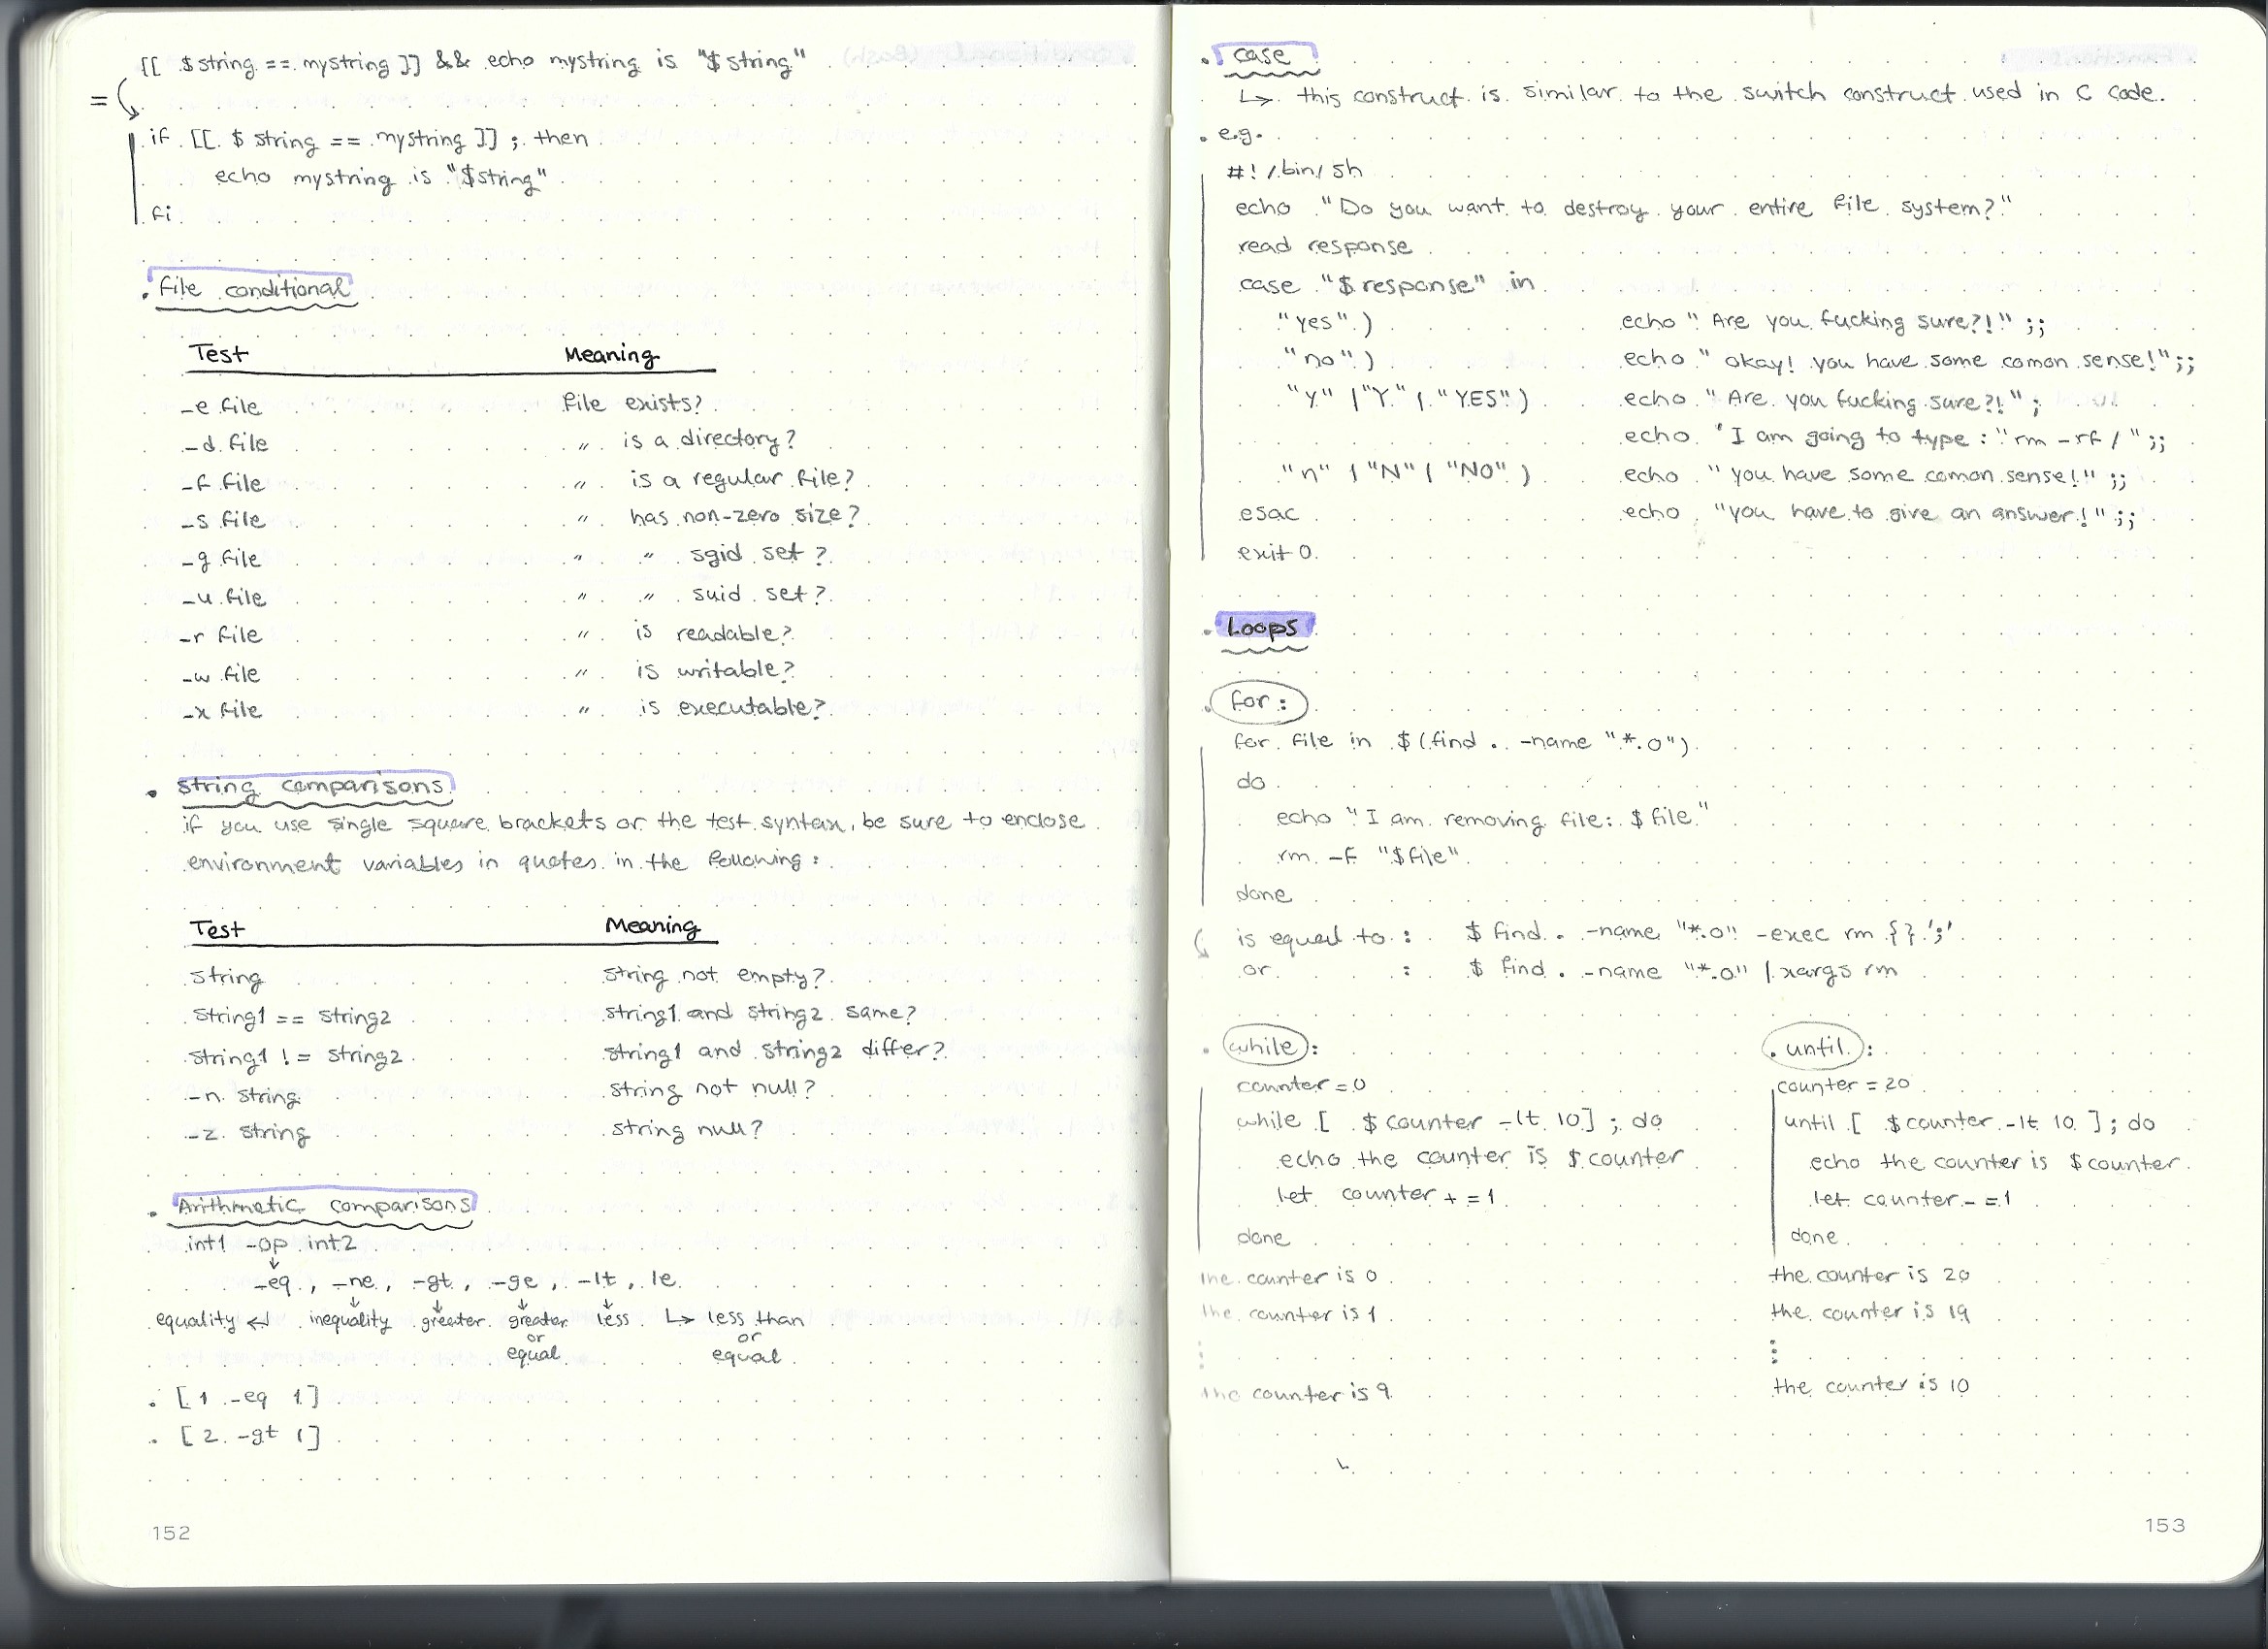 [[ $string == mystring ]] && echo mystring is "$string"
=
if [[ $string == mystring ]] ; then
echo mystring is "$string"
fi
. file conditional
Test Meaning
-e file file exists?
-d file " is a directory?
-f file " is a regular file?
-s file " has non-zero size?
-g file " " sgid set?
-u file " " suid set?
-r file " is readable?
-w file " is writable?
-x file " is executable?
. string comparisons
if you use single square brackets or the test syntax, be sure to enclose
environment variables in quotes in the following:
Test Meaning
string string not empty?
string1 == string2 string1 and string2 same?
string1 != string2 string1 and string2 differ?
-n string string not null?
-z string string null?
. Arithmetic comparisons
int1 -op int2
-eq, -ne, -gt, -ge, -lt, le
equality ↵ inequality greater greater less ↳ less than
or or
equal equal
. [ 1 -eq 1 ]
. [ 2 -gt 1 ]
152
. case
↳ this construct is similar to the switch construct used in C code.
. e.g.
#! /bin/sh
echo "Do you want to destroy your entire file system?"
read response
case "$response" in
"yes") echo "Are you fucking sure?!" ;;
"no") echo "okay! you have some comon sense!" ;;
"y" | "Y" | "YES") echo "Are you fucking sure?!" ;
echo 'I am going to type : "rm -rf / " ;;
"n" | "N" | "NO") echo "you have some comon sense!" ;;
esac echo "you have to give an answer!" ;;
exit 0
. Loops
. for :
for file in $(find . -name "*.o")
do
echo "I am removing file: $file"
rm -f "$file"
done
is equal to : $ find . -name "*.o" -exec rm {} ';'
or : $ find . -name "*.o" | xargs rm
. while :
counter = 0
while [ $counter -lt 10 ] ; do
echo the counter is $counter
let counter += 1
done
the counter is 0
the counter is 1
⋮
the counter is 9
. until :
counter = 20
until [ $counter -lt 10 ] ; do
echo the counter is $counter
let counter -= 1
done
the counter is 20
the counter is 19
⋮
the counter is 10
153